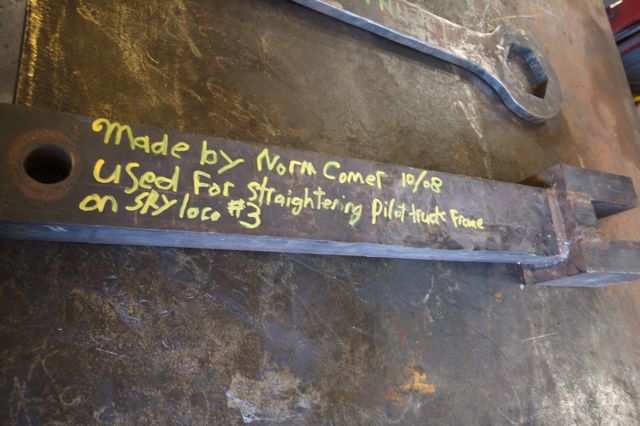 Made by Norm Comer 10/08
used For straightening Pilot truck Frame
on SRy loco #3